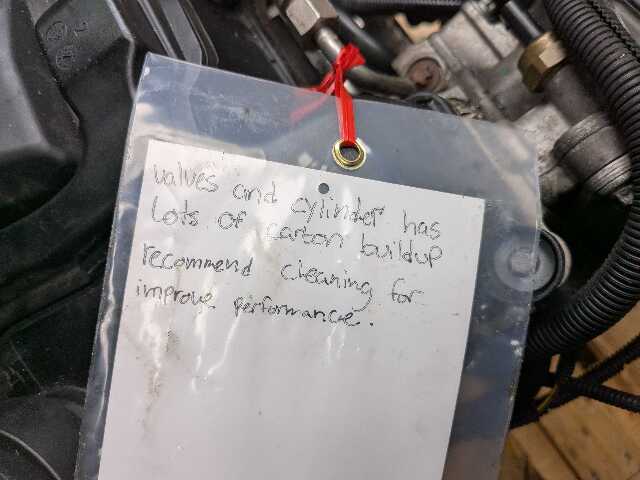 valves and cylinder has
Lots of carbon buildup
recommend cleaning for
improve performance.